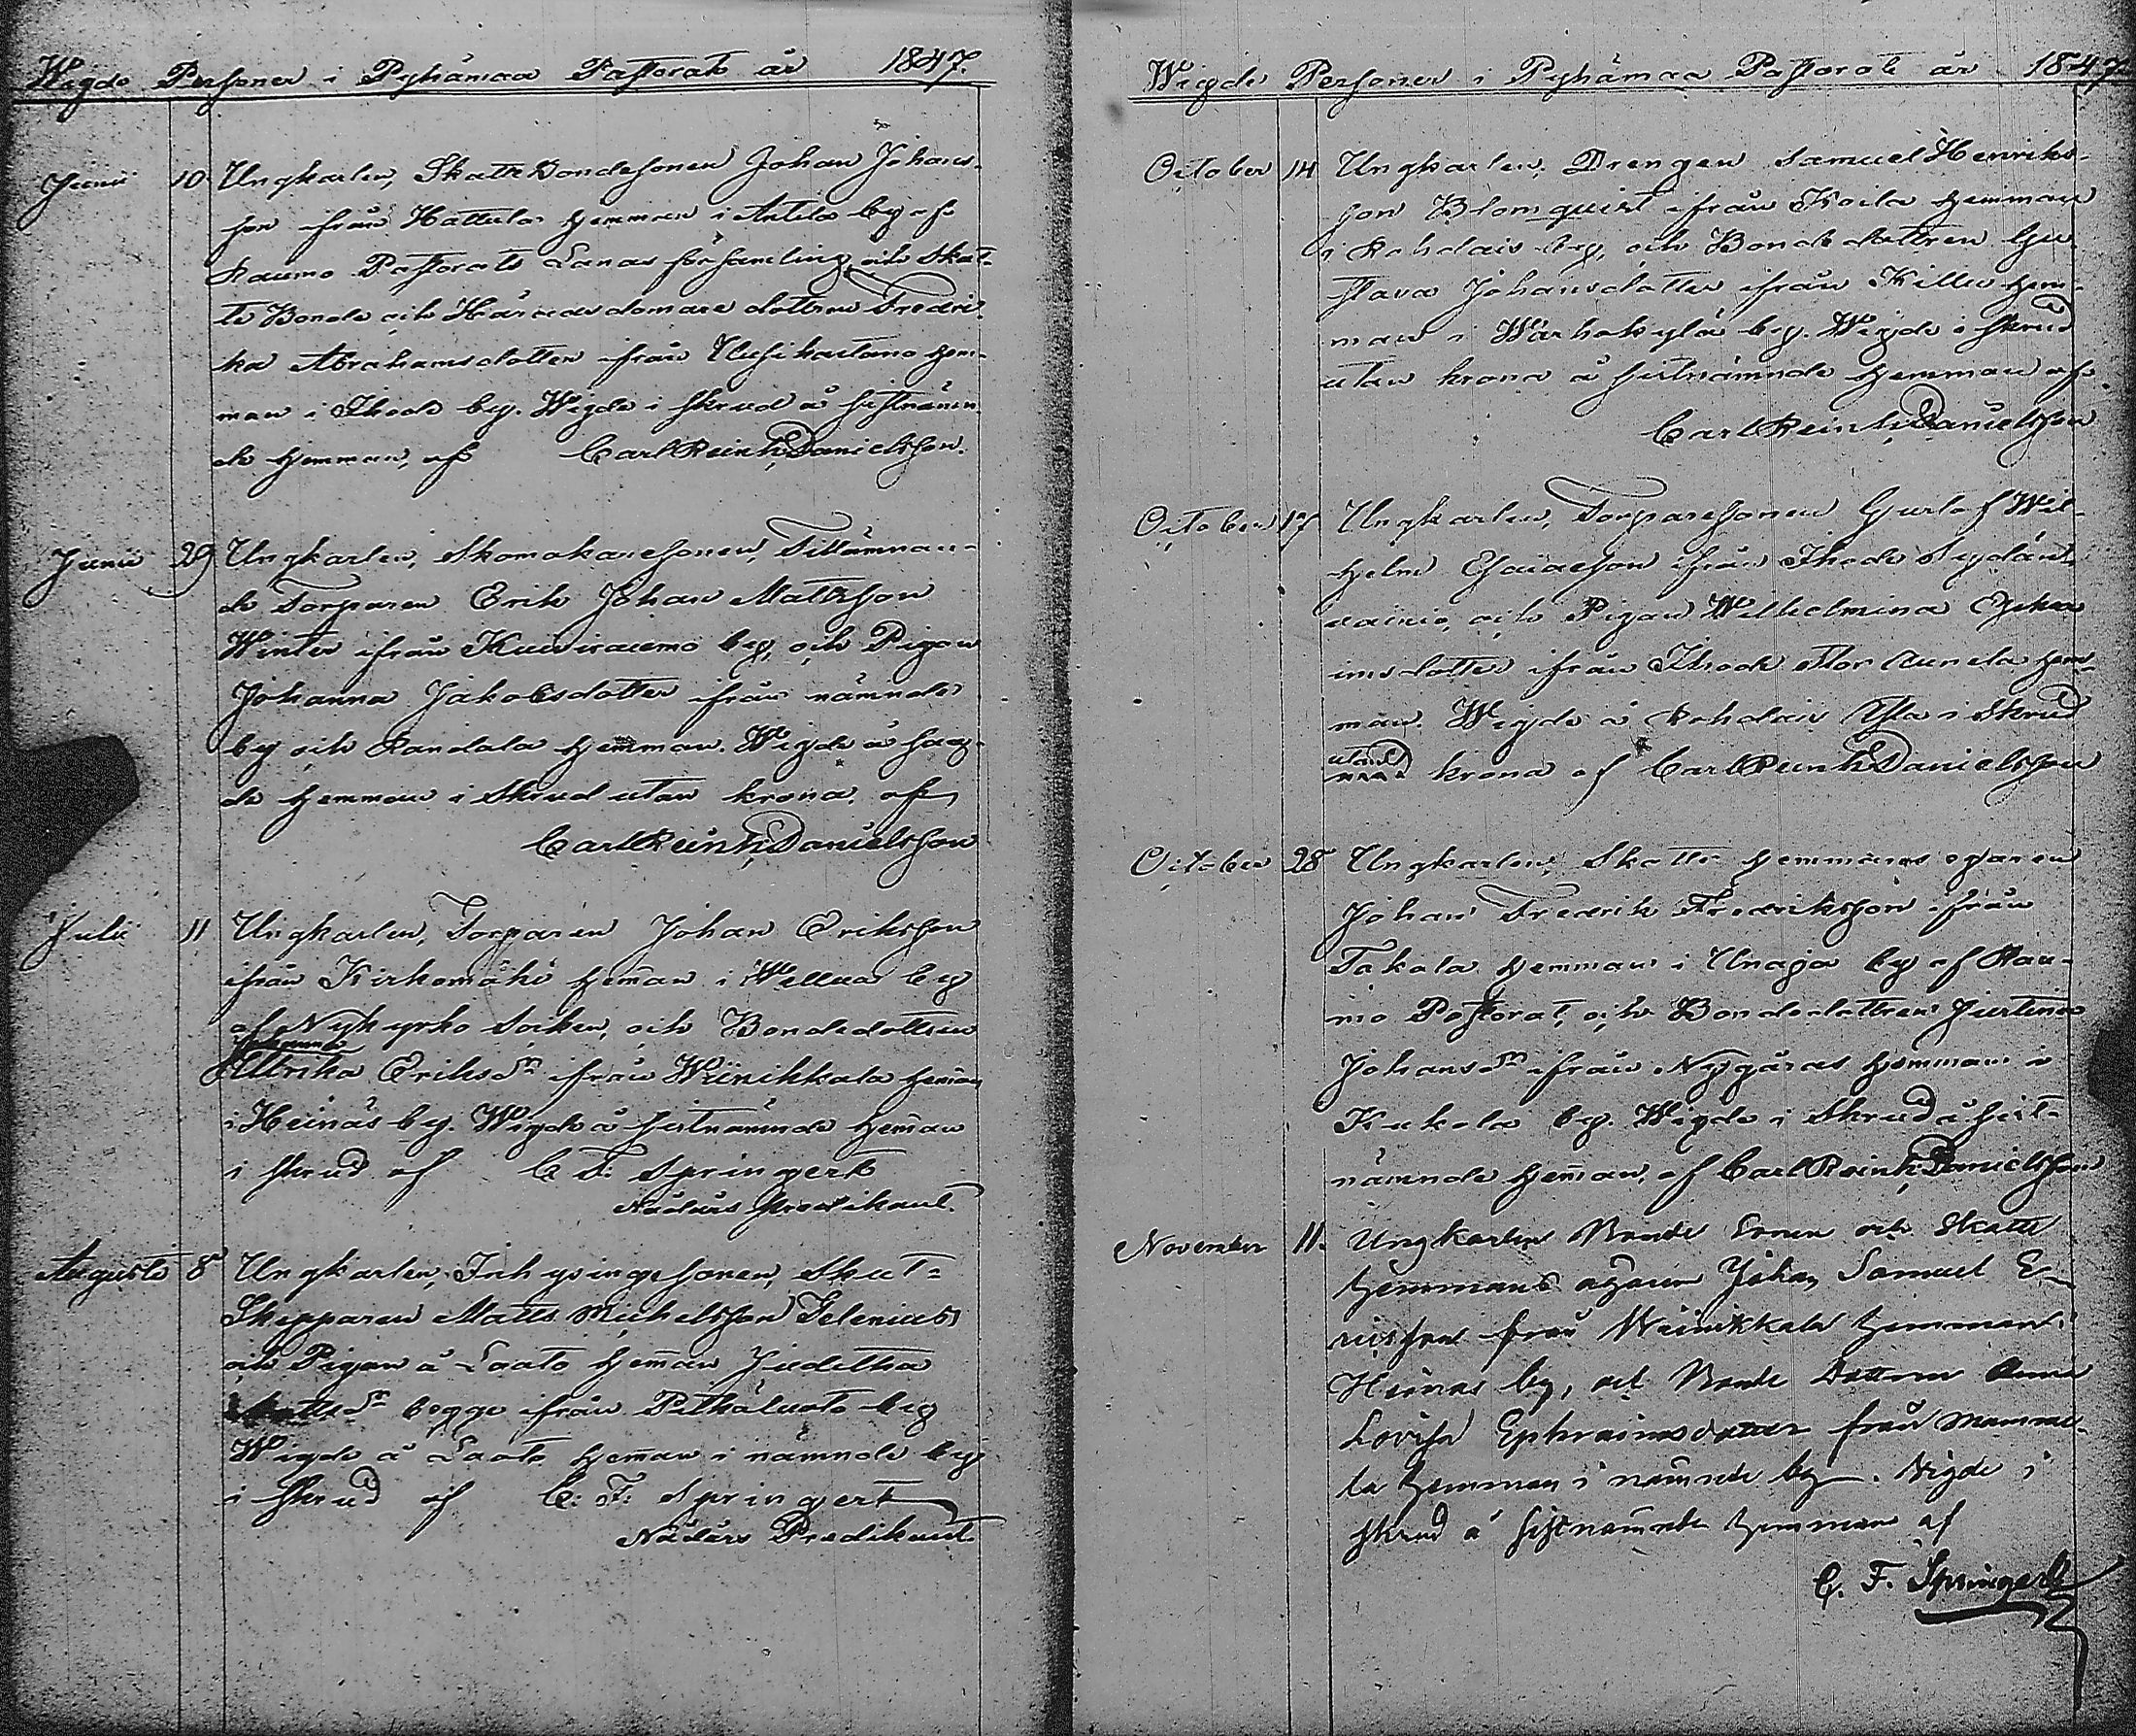 Wigde Personer i Pyhämaa Pastorat år 1847.
Junii 10 Ungkarlen, Skatte Bondesonen Johan Johans-
son ifrån Hattula Hemman i Anttila by af
Raumo Pastorats Lanas församling, och Skat-
te Bonde och Häradsdomare dottren Fredri-
ka Abrahamsdotter ifrån Uusikartano Hem-
man i Ihode by. Wigde i skrud å sistnämn-
de Hemman, af Carl Reinh. Danielsson.
Junii 29 Ungkarlen, Skomakaresonen, Tillämnan-
de Torparen Erik Johan Mattsson
Winter ifrån Kuivraumo by, och Pigan
Johanna Jakobsdotter ifrån nämnde
by och Randala Hemman. Wigde å sag-
de Hemman i Skrud utan krona, af
Carl Reinh. Danielsson
Julii 11 Ungkarlen, Torparen Johan Eriksson
ifrån Kirkomäki Hem̄an i Wellua by
af Nykyrko Socken, och Bondedottren
Ulrika Eriksdr ifrån Wiinikkala Hem̄an
i Heinäs by. Wigde å sistnämnde Hem̄an
i skrud af C. F. Springert
Nådårs Predikant.
Augusti 8 Ungkarlen, Inhysingesonen, Skut-
Skepparen Matts Michelsson Selenius
och Pigan å Laato Hem̄an Judetha
dr begge ifrån Pitkäluoto by
Wigde å Laato Hem̄an i nämnde by
i skrud af C. F. Springert
Nådårs Predikant
Wigde Personer i Pyhämaa Pastorat år 1847.
October 14 Ungkarlen, Drengen Samuel Henriks-
son Blomquist ifrån Koila Hemman
i Rohdais by, och Bondedottren Gu-
stava Johansdotter ifrån Killu Hem-
man i Warhokylä by. Wigde i skrud
utan krona å sistnämnde Hemman af
Carl Reinh. Danielsson
October 17 Ungkarlen, Torparesonen Gustaf Wil-
helm Esaiasson ifrån Ihode Sydän-
vainio, och Pigan Wilhelmina Ephra-
imsdotter ifrån Ihode Stor Aunela Hem-
man. Wigde å Rohdais Ylla i Skrud
utan krona af Carl Reinh. Danielsson
October 28 Ungkarlen, Skatte Hemmans egaren
Johan Fredrik Fredriksson ifrån
Takala Hemman i Unaja by af Rau-
mo Pastorat, och Bondedottren Justina
Johansdr ifrån Nygåras Hemman i
Kukola by. Wigde i Skrud å sist-
nämnde Hem̄an, af Carl Reinh. Danielsson
November 11. Ungkarlen Bonde Sonen och Skatte
Hemmans egaren Johan Samuel E-
ricsson från Wiinikkala Hemman i
Heinäs by, och Bonde Dottren Anna
Lovisa Ephraimsdotter från Mamma-
la Hemman i nämnde by. Wigde i
skrud å sistnämnde Hemman af
C. F. Springert